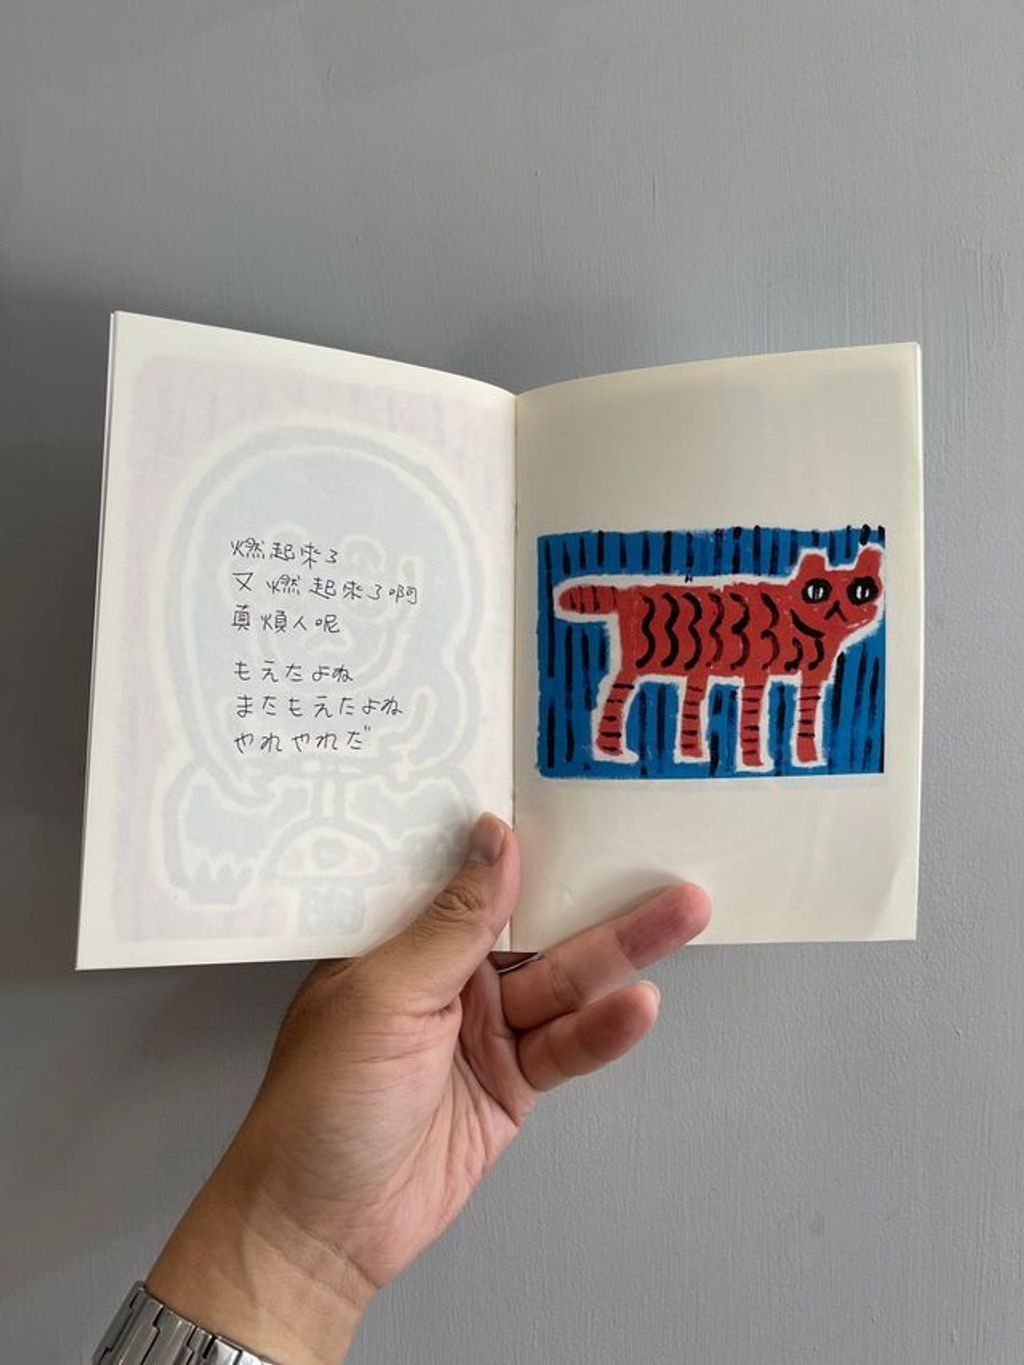 燃起來了
又燃起來了啊
真煩人呢
もえたよね
またもえたよね
やれやれだ